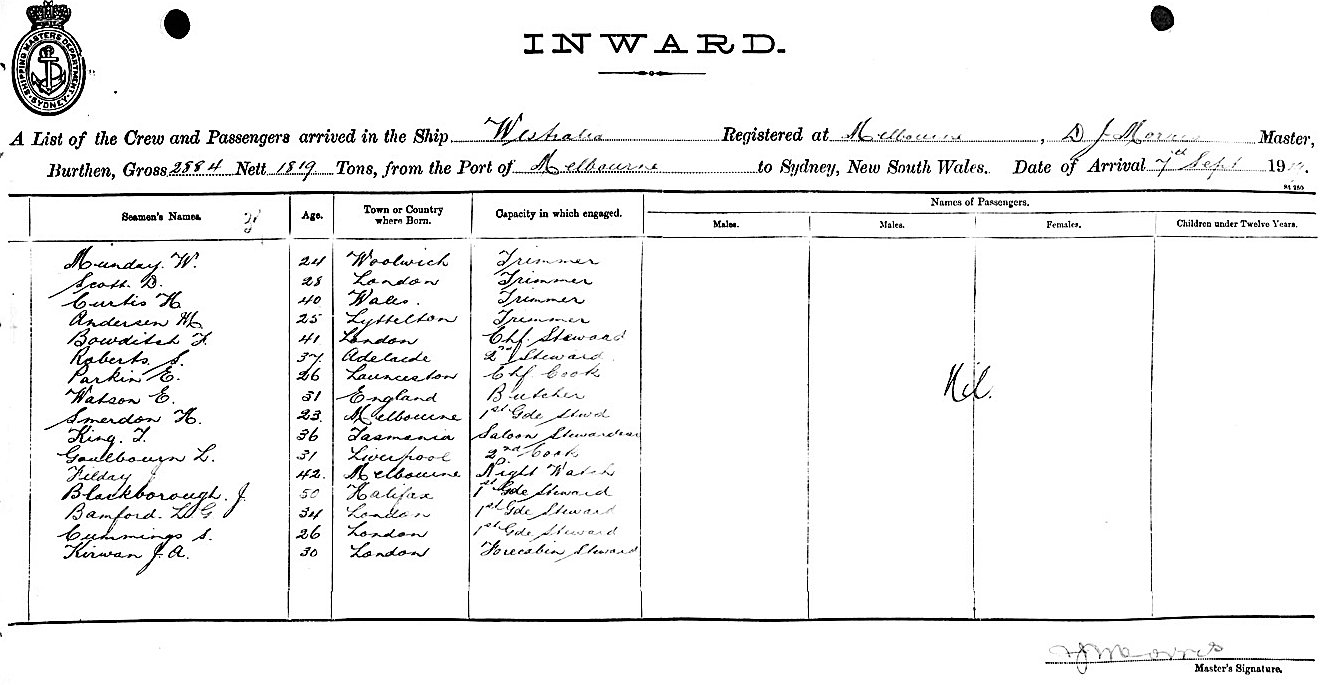 SHIPPING MASTERS DEPARTMENT. SYDNEY.
INWARD.
A List of the Crew and Passengers arrived in the Ship Westralia Registered at Melbourne, D J Morris Master,
Burthen, Gross 2884 Nett 1819 Tons, from the Port of Melbourne to Sydney, New South Wales. Date of Arrival 7th Sept 19
Names of Passengers.
Seamen's Names. Age. Town or Country where Born. Capacity in which engaged. Males. Males. Females. Children under Twelve Years.
Munday. W. 24 Woolwich Trimmer
Scott D. 28 London Trimmer
Curtis H 40 Wales. Trimmer
Andersen 25 Lyttelton Trimmer
Bowditch F 41 London Chf. Steward
Roberts. S. 37 Adelaide 2nd Steward
Parkin E. 26 Launceston Chf Cook
Watson E. 31 England Butcher
Smerdon H. 23. Melbourne 1st Gde Stwd
King. T. 36 Tasmania Saloon Stewardess
Goulbourn L. 31 Liverpool 2nd Cook
Filday 42. Melbourne Night Watch
Blackborough. J. 50 Halifax 1st Gde Steward
Bamford. L G 34 London 1st Gde Steward
Cummings S. 26 London 1st Gde Steward
Kirwan J. A. 30 London Forecabin Steward
Nil.
Morris
Master's Signature.